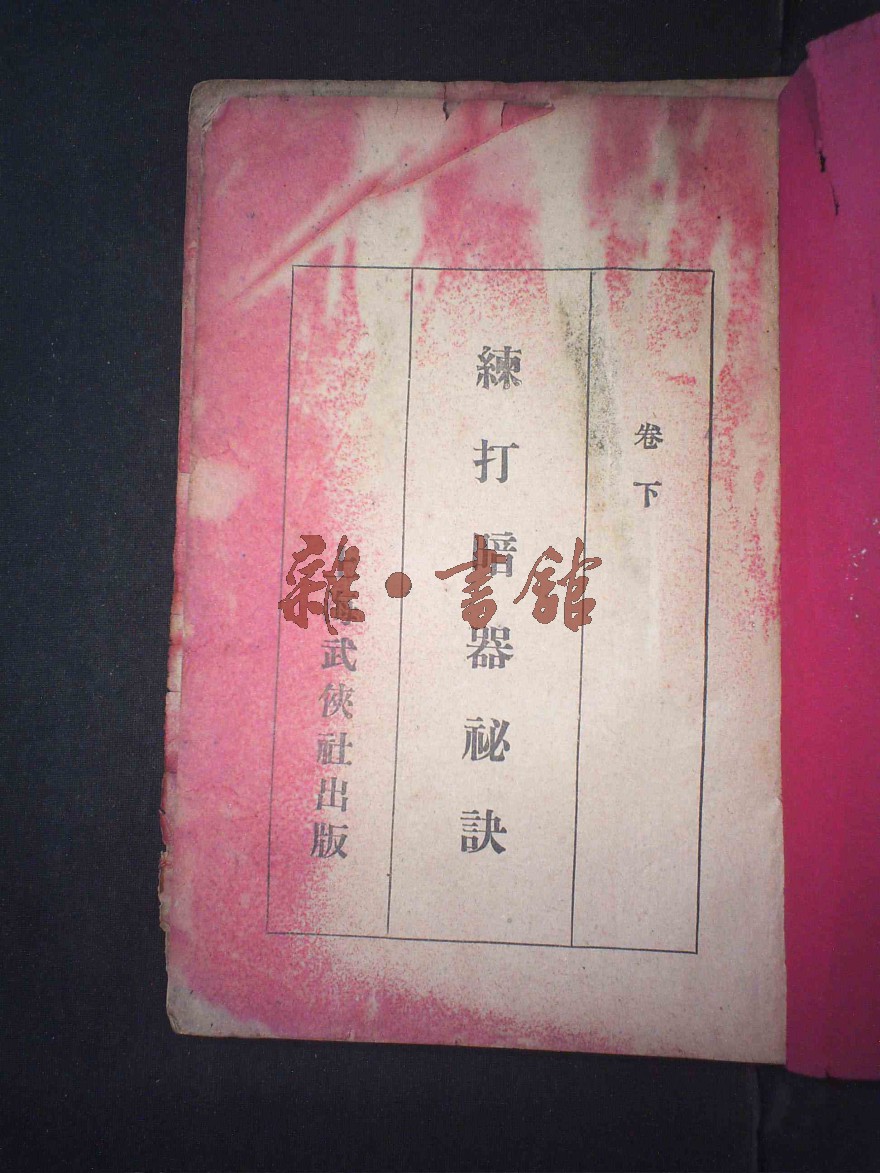 卷下
練打暗器祕訣
上海武俠社出版
雜·書館